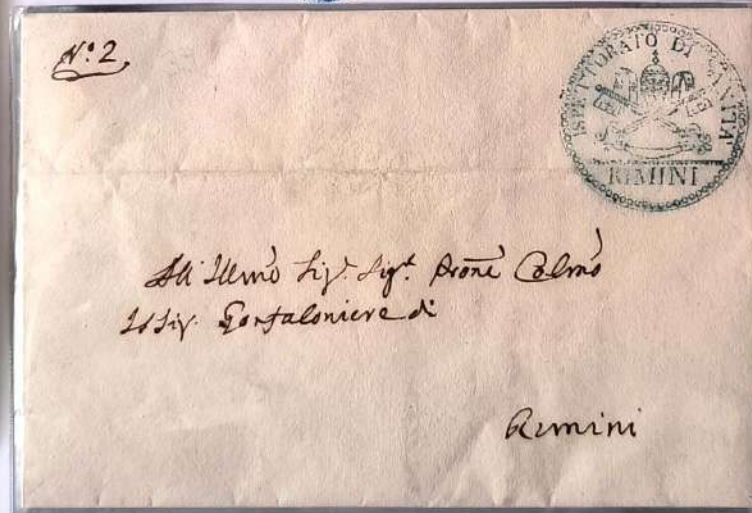 N.º 2
ISPETTORATO DI SANITA'
RIMINI
All' Illmo Sig.r Sig.r Prone Colmo
Il Sig. Gonfaloniere di
Rimini